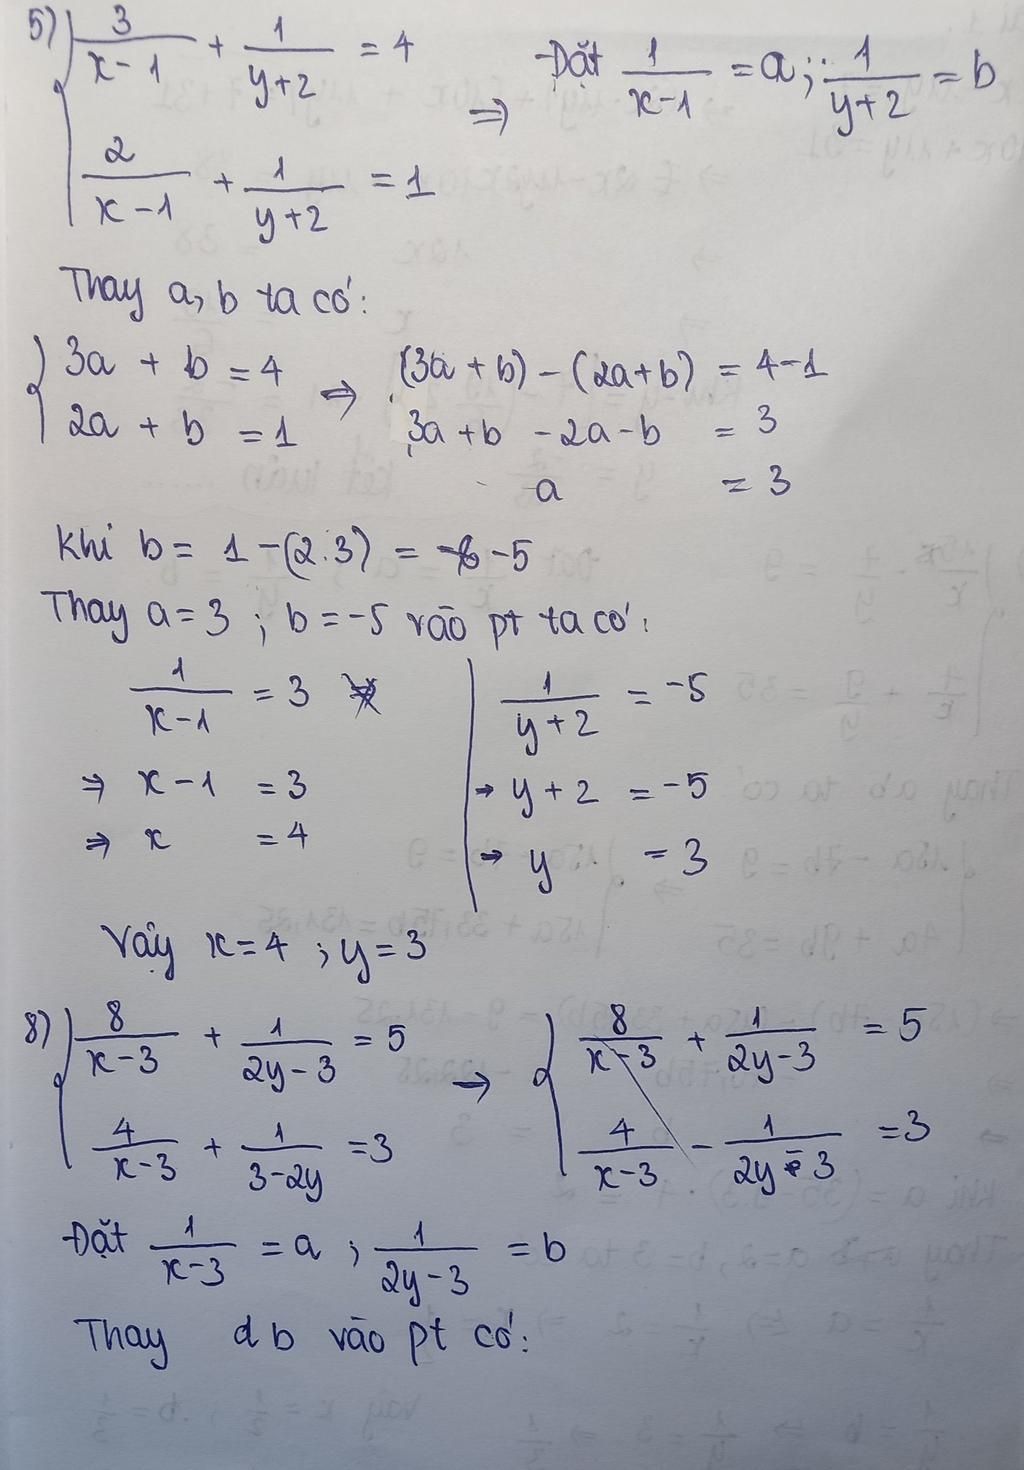 5) { 3/(x-1) + 1/(y+2) = 4 ⇒ Đặt 1/(x-1) = a ; 1/(y+2) = b
2/(x-1) + 1/(y+2) = 1
Thay a, b ta có:
{ 3a + b = 4 ⇒ (3a + b) - (2a+b) = 4-1
2a + b = 1 3a + b - 2a - b = 3
a = 3
Khi b = 1 - (2.3) = -5
Thay a = 3 ; b = -5 vào pt ta có:
1/(x-1) = 3 | 1/(y+2) = -5
⇒ x - 1 = 3 | → y + 2 = -5
⇒ x = 4 | → y = 3
Vậy x = 4 ; y = 3
8) { 8/(x-3) + 1/(2y-3) = 5 → { 8/(x-3) + 1/(2y-3) = 5
4/(x-3) + 1/(3-2y) = 3 4/(x-3) - 1/(2y-3) = 3
Đặt 1/(x-3) = a ; 1/(2y-3) = b
Thay a b vào pt có: